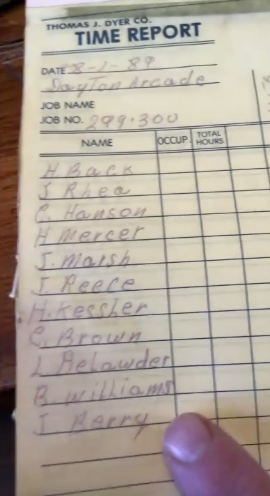 THOMAS J. DYER CO.
TIME REPORT
DATE 8-1-89
Dayton Arcade
JOB NAME
JOB NO. 299-300
NAME OCCUP. TOTAL HOURS
H Back
J Rhea
C. Hanson
H Mercer
J. Marsh
J. Reece
H. Kessler
C. Brown
L DeLawder
B Williams
J. Berry